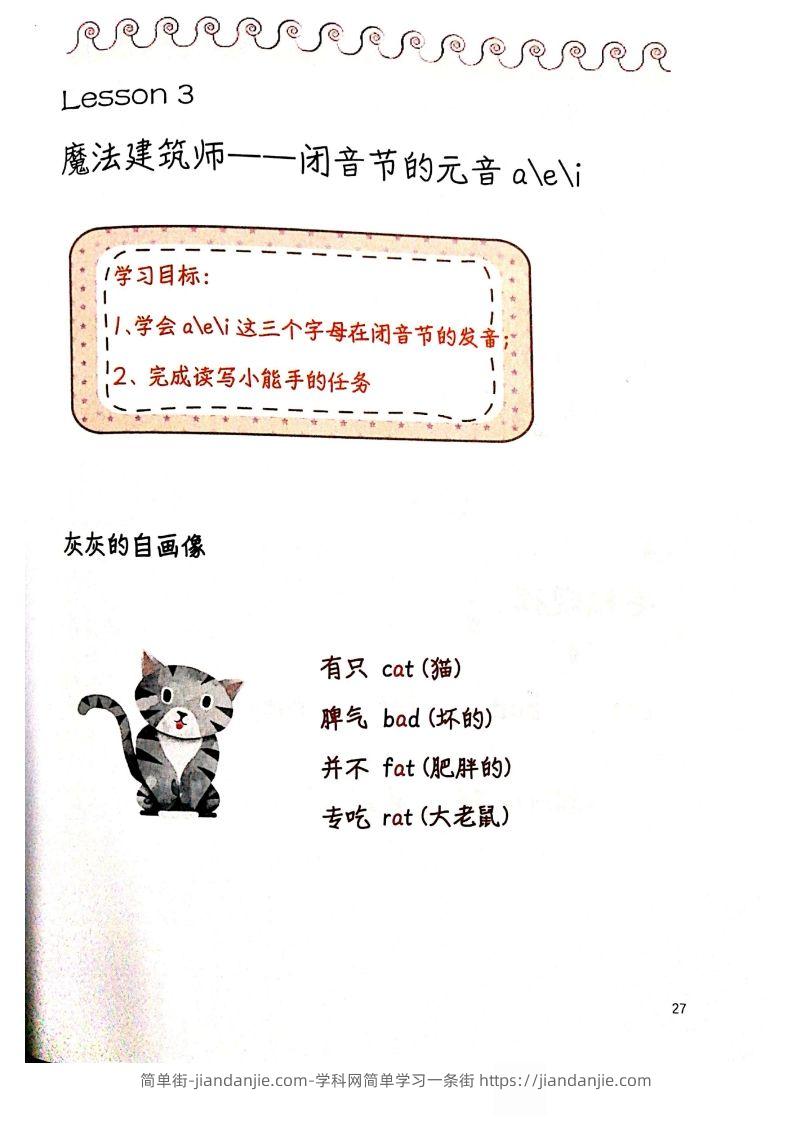 Lesson 3
魔法建筑师——闭音节的元音 a\e\i
学习目标：
1、学会 a\e\i 这三个字母在闭音节的发音；
2、完成读写小能手的任务
灰灰的自画像
有只 cat（猫）
脾气 bad（坏的）
并不 fat（肥胖的）
专吃 rat（大老鼠）
27
简单街-jiandanjie.com-学科网简单学习一条街 https://jiandanjie.com